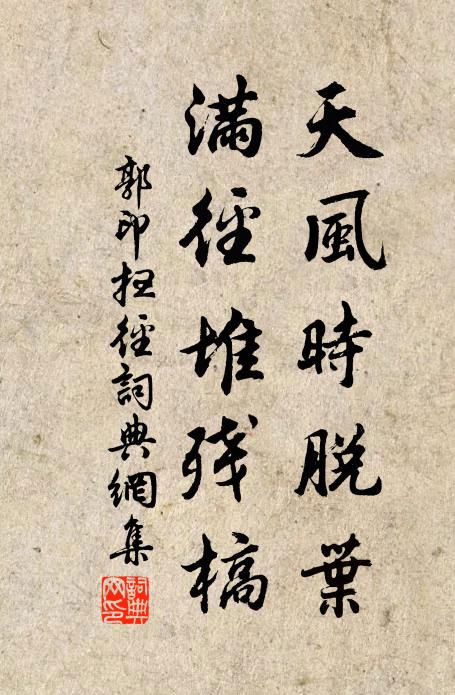 天風時脫葉
滿徑堆残槁
郭印扫徑詞典網集
詞典网印